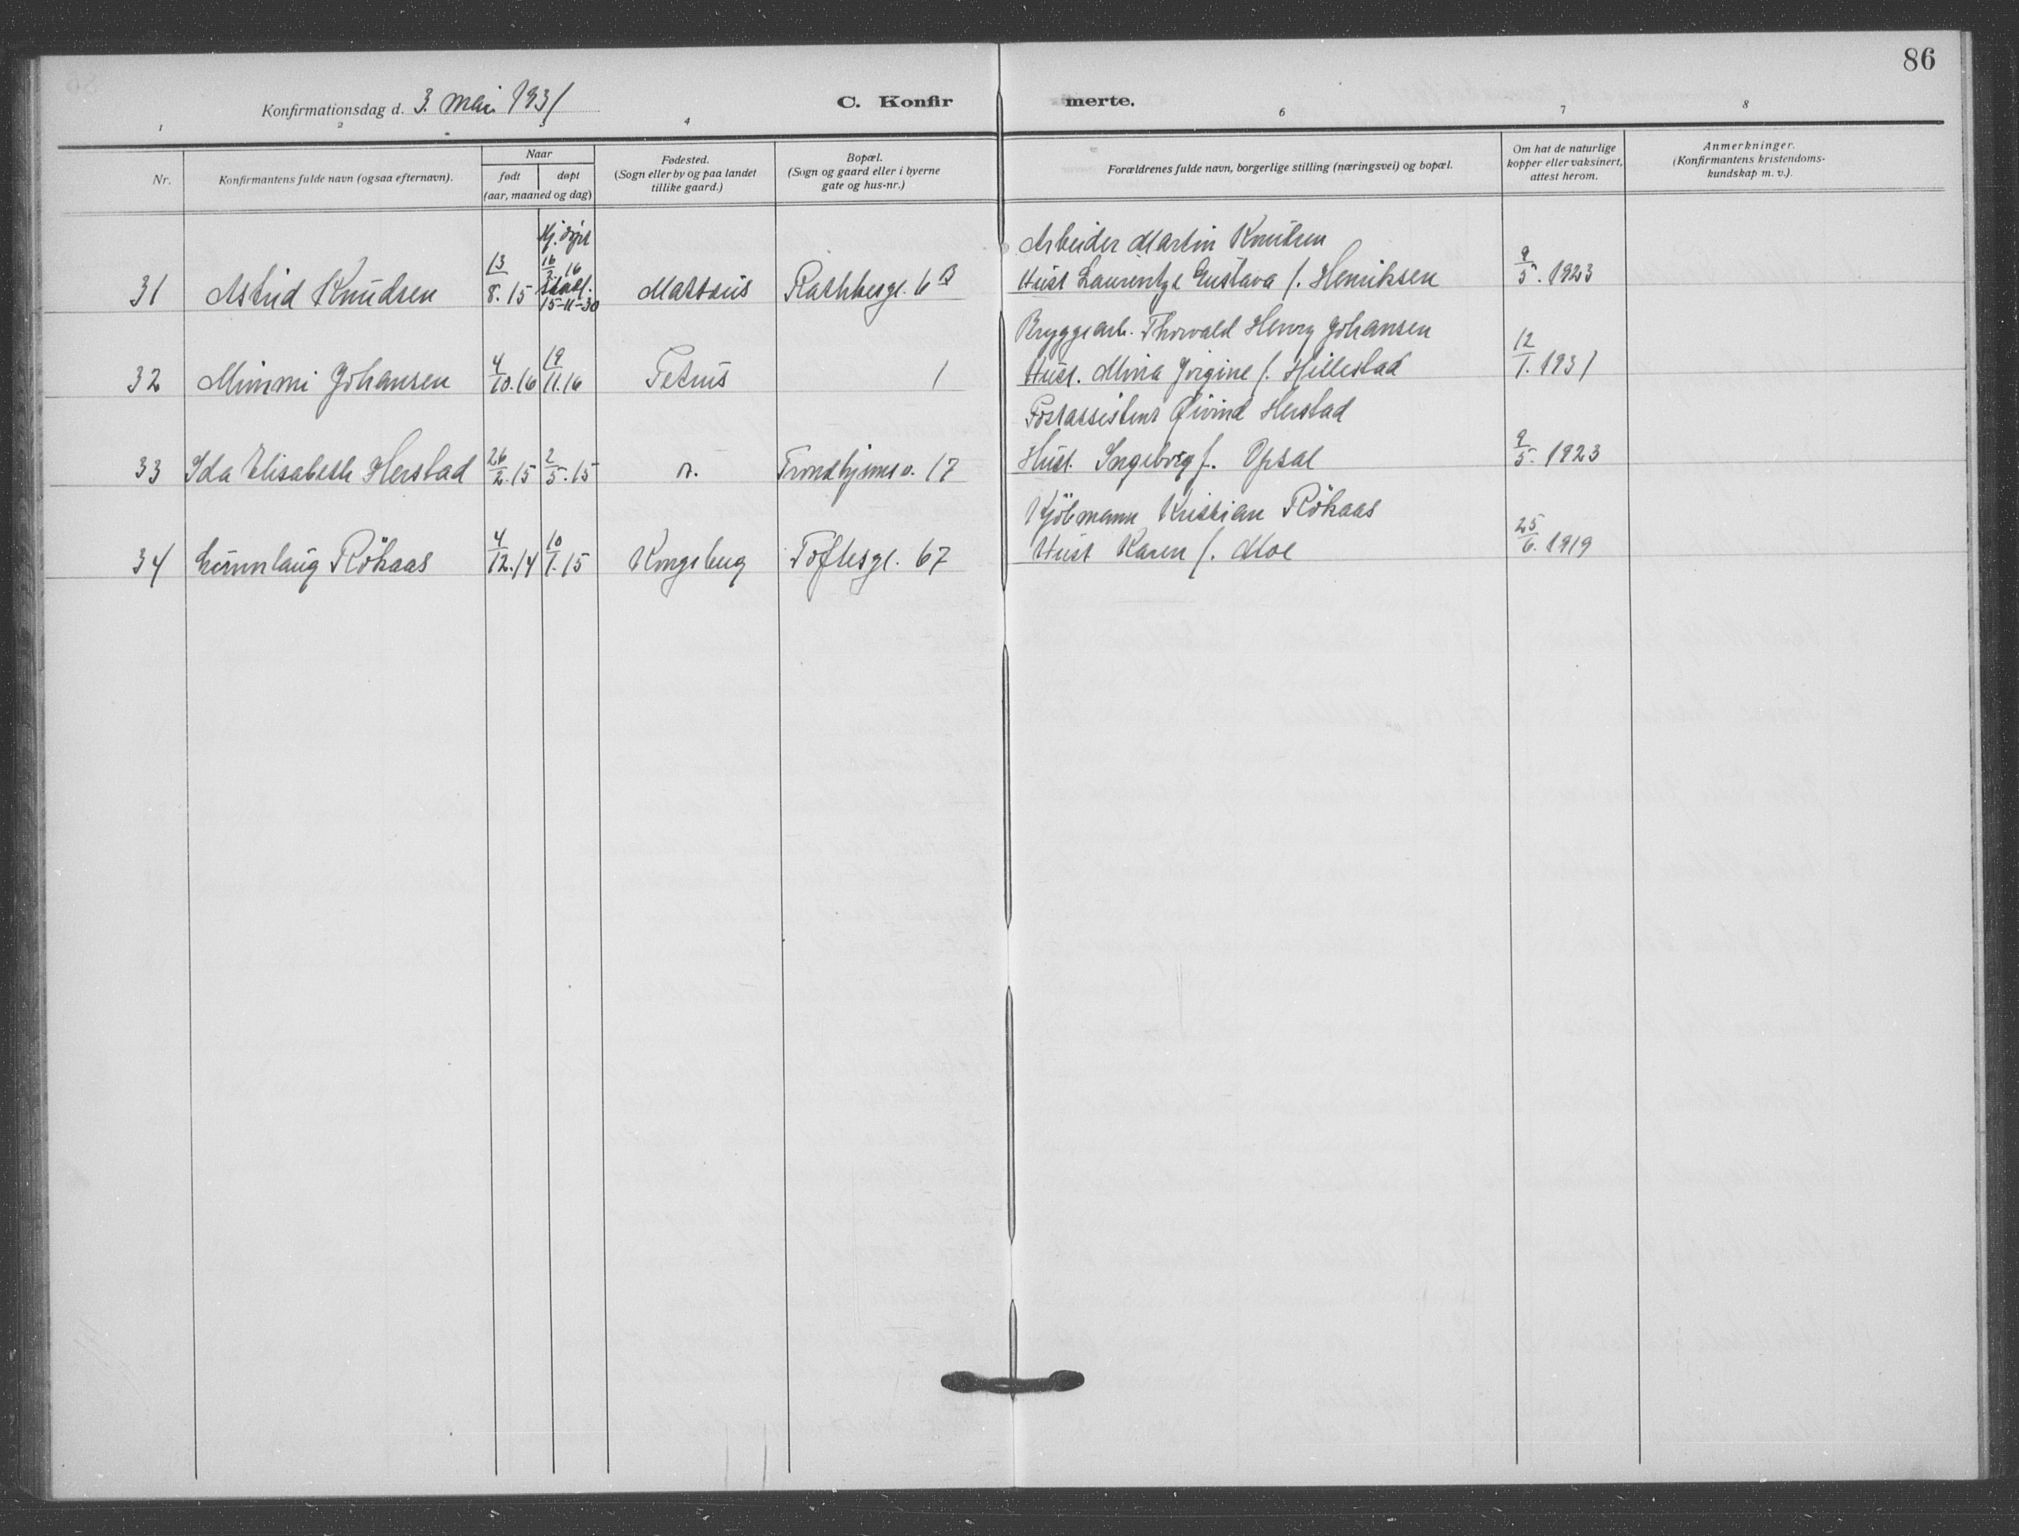 86
Konfirmationsdag d. 3. mai 1931
C. Konfir merte.
1 2 3 4 6 7 8
Nr.
Konfirmantens fulde navn (ogsaa efternavn).
Naar
født
døpt
(aar, maaned og dag)
Fødested.
(Sogn eller by og paa landet
tillike gaard.)
Bopæl.
(Sogn og gaard eller i byerne
gate og hus-nr.)
Forældrenes fulde navn, borgerlige stilling (næringsvei) og bopæl.
Om hat de naturlige
kopper eller vaksinert,
attest herom.
Anmerkninger.
(Konfirmantens kristendoms-
kundskap m. v.).
Hj. døpt
16/2.16
15-11-30
Arbeider Martin Knudsen
31 Astrid Knudsen 13/8.15 Matteus Rathkesgt. 6 B Hust Laurentze Gustava f. Henriksen 9/5. 1923
Bryggearb. Thorvald Henry Johansen
32 Mimmi Johansen 4/10.16 19/11.16 Petrus 1 Hust. Mina Jørgine f. Hillestad 12/1. 1931
Postassistent Øivind Herstad
33 Ida Elisabeth Herstad 26/2.15 2/5.15 n. Trondhjemsv. 17 Hust. Ingeborg f. Opsal 9/5. 1923
Kjöbmann Kristian Röhaas
34 Gunnlaug Röhaas 4/12.14 10/1.15 Kongsberg Toftesgt. 67 Hust Karen f. Moe 25/6. 1919